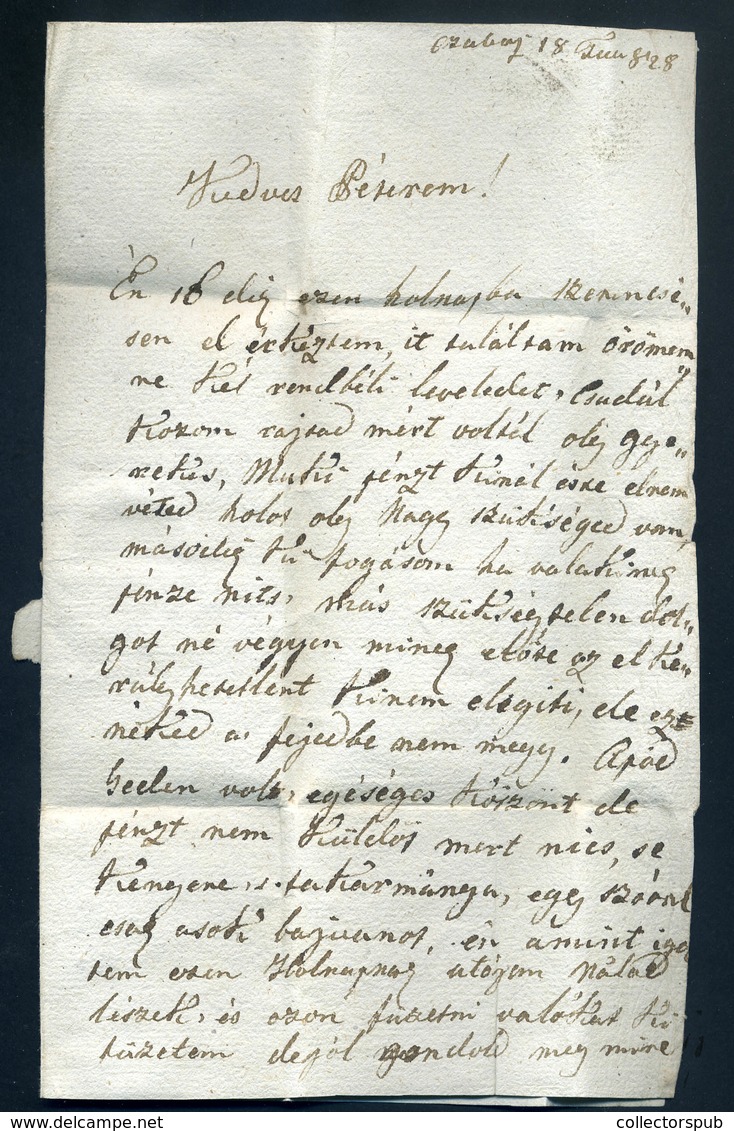 Czabaj 18 Jun 828
Kedves Péterem!
Én 16 dig ezen holnapba szerencsé„
sen el érkeztem, it találtam örömem„
re két rendbéli leveledet, Csudál
kozom rajtad mért voltál olÿ gye„
rekes, Muki pénzt kinál és te elnem
véted holot olÿ Nagÿ szükséged van,
másodig ki fogásom ha valakineg
pénze nits, más szükségtelen dol„
got né végyen mineg elöte az el ke„
rülhetetlent kinem elegiti, de ezt
néked a fejedbe nem megy. Apád
heelen volt, egéséges köszönt de
pénzt nem küldöt mert nics, se
kenyere, s takarmánya, egÿ szóval
csag a sok baj van ot, én amint igaz
tem ezen Holnapnag utóján Nálad
lészek, és azon fizetni valókat ki
fizetem de jól gondold meg mire
collectorspub